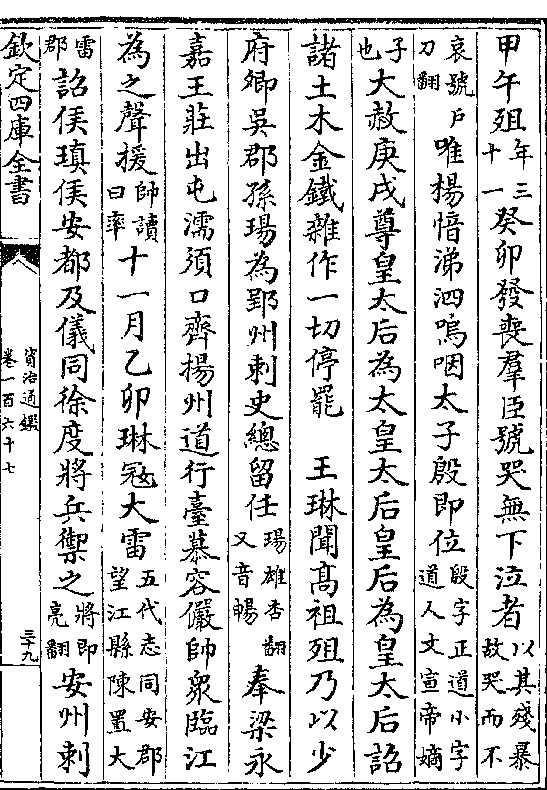 甲午殂年三十一癸卯發喪羣臣號哭無下泣者以其殘暴故哭而不
哀號戶刀翻唯楊愔涕泗嗚咽太子殷即位殷字正道小字道人文宣帝嫡
子也大赦庚戌尊皇太后為太皇太后皇后為皇太后詔
諸土木金鐵雜作一切停罷　王琳聞高祖殂乃以少
府卿吳郡孫瑒為郢州刺史總留任瑒雄杏翻又音暢奉梁永
嘉王莊出屯濡須口齊揚州道行臺慕容儼帥衆臨江
為之聲援帥讀曰率十一月乙卯琳寇大雷五代志同安郡望江縣陳置大
雷郡詔侯瑱侯安都及儀同徐度將兵禦之將即亮翻安州刺
欽定四庫全書
資治通鑑
卷一百六十七
三十九